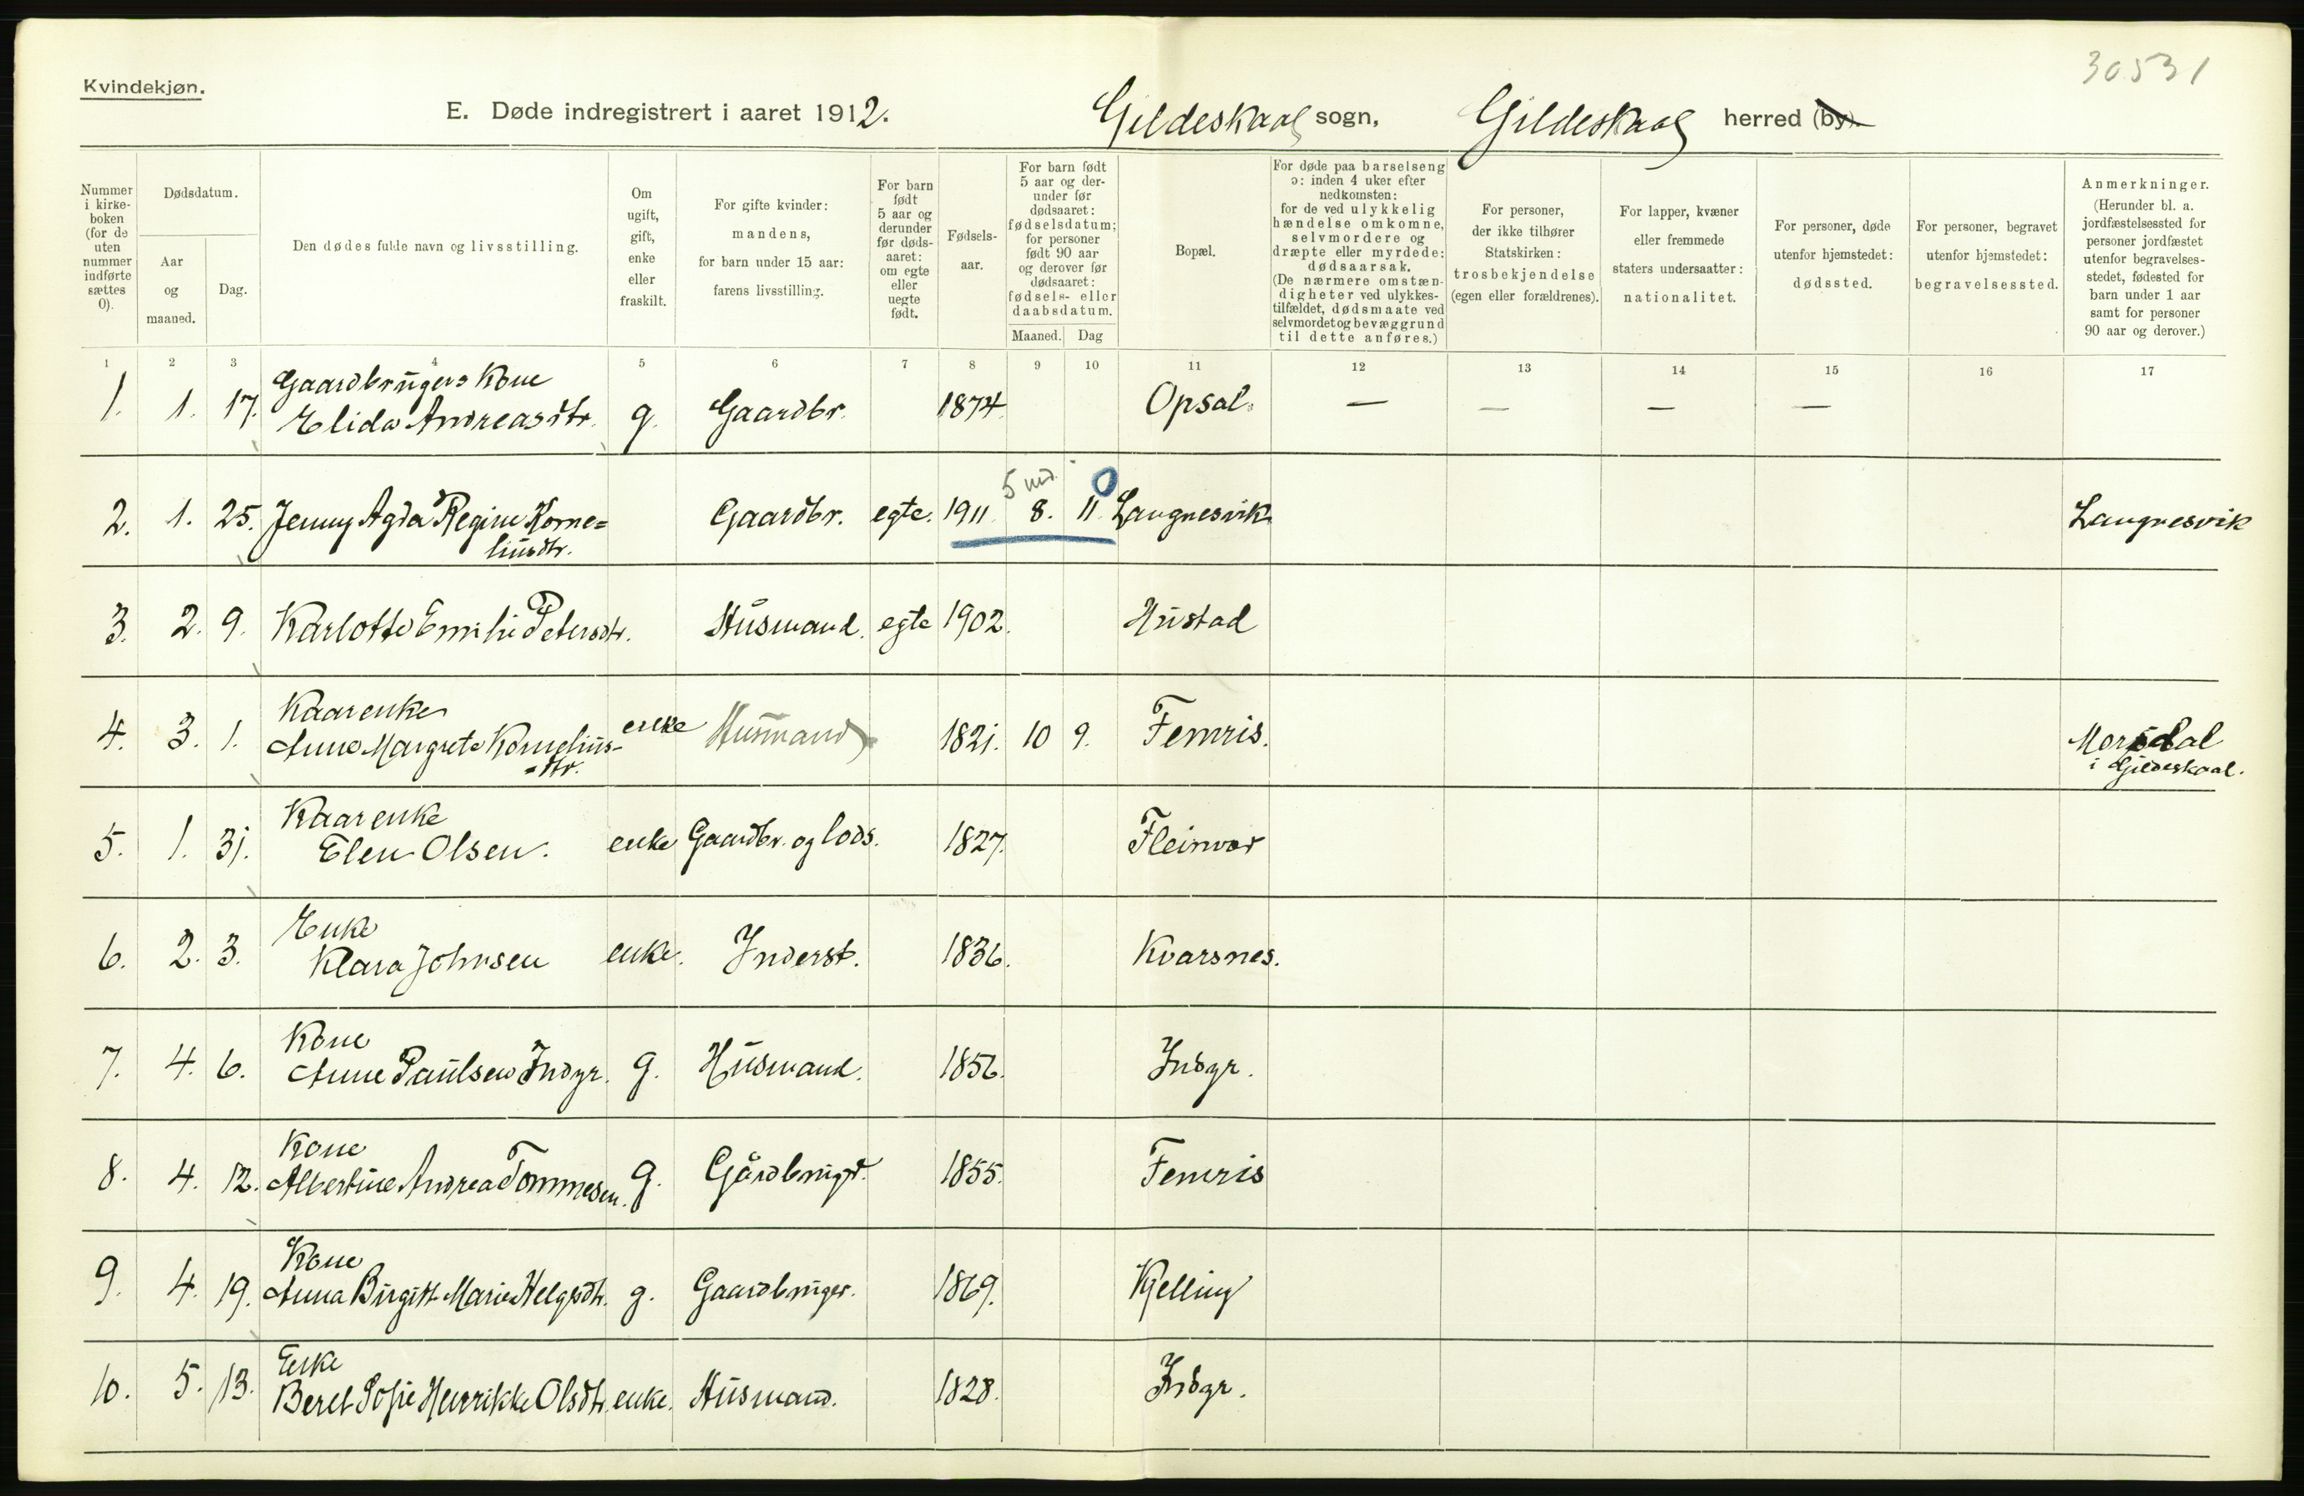 30531
Kvindekjøn.
E. Døde indregistrert i aaret 1912. Gildeskaal sogn, Gildeskaal herred (by).
Nummer i kirke- boken (for de uten nummer indførte sættes 0).
Dødsdatum.
Aar og maaned.
Dag.
Den dødes fulde navn og livsstilling.
Om ugift, gift, enke eller fraskilt.
For gifte kvinder: mandens, for barn under 15 aar: farens livsstilling.
For barn født 5 aar og derunder før døds- aaret: om egte eller uegte født.
Fødsels- aar.
For barn født 5 aar og der- under før dødsaaret: fødselsdatum; for personer født 90 aar og derover før dødsaaret: fødsels- eller daabsdatum.
Maaned. Dag
Bopæl.
For døde paa barselseng ɔ: inden 4 uker efter nedkomsten: for de ved ulykkelig hændelse omkomne, selvmordere og dræpte eller myrdede: dødsaarsak. (De nærmere omstæn- digheter ved ulykkes- tilfældet, dødsmaate ved selvmordet og bevæggrund til dette anføres.)
For personer, der ikke tilhører Statskirken: trosbekjendelse (egen eller forældrenes).
For lapper, kvæner eller fremmede staters undersaatter: nationalitet.
For personer, døde utenfor hjemstedet: dødssted.
For personer, begravet utenfor hjemstedet: begravelsessted.
Anmerkninger. (Herunder bl. a. jordfæstelsessted for personer jordfæstet utenfor begravelses- stedet, fødested for barn under 1 aar samt for personer 90 aar og derover.)
1 2 3 4 5 6 7 8 9 10 11 12 13 14 15 16 17
Gaardbrugers Kone
1. 1. 17. Elida Andreasdtr. g. Gaardbr. 1874. Opsal. — — — —
5 md. 0
2. 1. 25. Jenny Agda Regine Korne= Gaardbr. egte. 1911. 8. 11. Langnesvik Langnesvik
liusdtr.
3. 2. 9. Karlotte Emilie Petersdtr. Husmand. egte 1902. Hustad
Kaarenke
4. 3. 1. Anne Margrete Kornelius- enke Husmand 1821. 10 9. Femris. Morsdal
-dtr. i Gildeskaal.
Kaarenke
5. 1. 31. Elen Olsen. enke Gaardbr. og lods. 1827. Fleinvær
Enke
6. 2. 3. Klara Johnsen enke. Inderst. 1836. Kvarsnes.
Kone
7. 4. 6. Anne Paulsen Indyr. g. Husmand. 1856. Indyr.
Kone
8. 4. 12. Albertine Andrea Tommesen. g. Gårdbruger. 1855. Femris
Kone
9. 4. 19. Anna Birgitt Marie Helgesdtr. g. Gaardbruger. 1869. Kjelling
Enke
10. 5. 13. Beret Sofie Henrikke Olsdtr. enke. Husmand. 1828. Indyr.